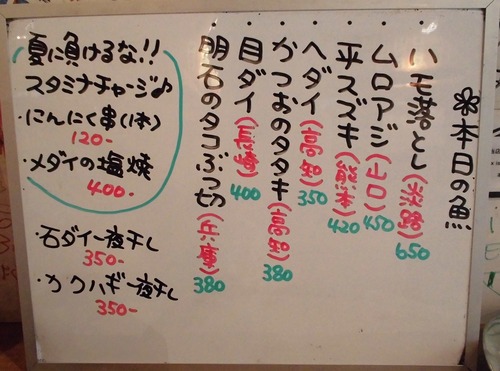 ❀本日の魚
・ハモ落とし(淡路)650
・ムロアジ(山口)450
・平スズキ(熊本)420
・ヘダイ(高知)350
・かつおのタタキ(高知)380
・目ダイ(長崎)400
・明石のタコぶつ切(兵庫)380
夏に負けるな!!
スタミナチャージ♪
・にんにく串(1本)
120-
・メダイの塩焼
400-
・石ダイ一夜干し
350-
・カワハギ一夜干し
350-